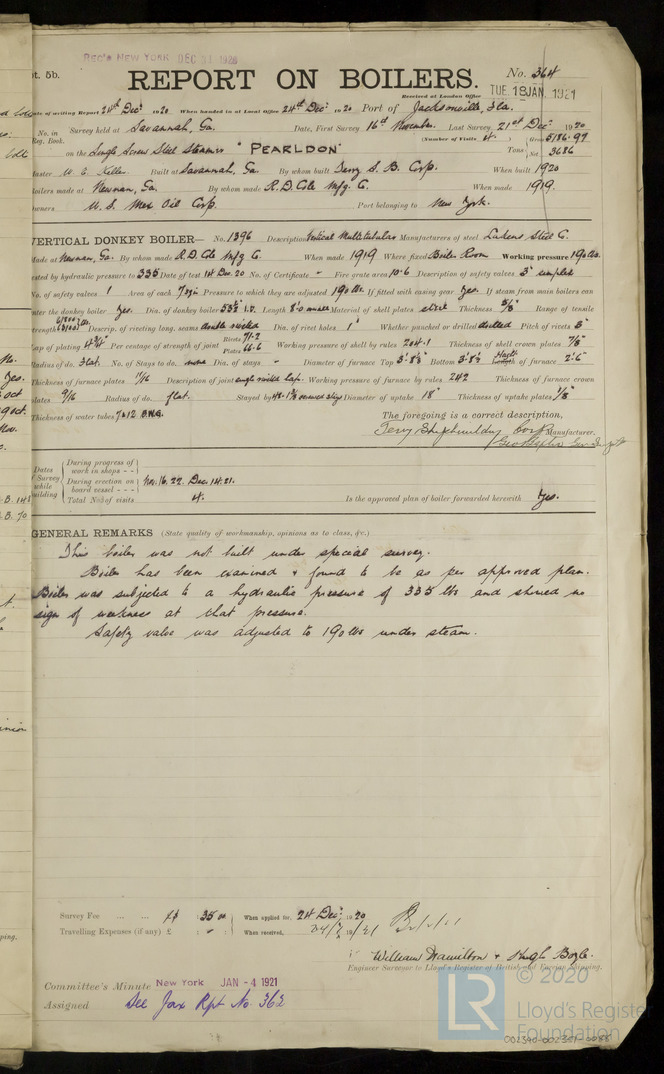 REC'D NEW YORK DEC 31 1920
pt. 5b.
REPORT ON BOILERS.
No. 364
Received at London Office TUE. 18 JAN. 1921
Date of writing Report 24th Decr 1920 When handed in at Local Office 24th Decr 1920 Port of Jacksonville, Fla.
No. in Reg. Book. Survey held at Savannah, Ga. Date, First Survey 16th November. Last Survey 21st Decr 1920
(Number of Visits 4)
on the Single Screw Steel Steamer "PEARLDON" Tons Gross 5186.97 Net 3686
Master Built at Savannah, Ga. By whom built Terry S. B. Corp. When built 1920
Boilers made at Newnan, Ga. By whom made R. D. Cole M'f'g Co. When made 1919.
Owners U.S. Mex Oil Corp. Port belonging to New York.
VERTICAL DONKEY BOILER— No. 1396 Description Vertical Multitubular Manufacturers of steel Lukens Steel Co.
Made at Newnan, Ga. By whom made R. D. Cole M'f'g Co. When made 1919 Where fixed Boiler Room Working pressure 190 lbs.
tested by hydraulic pressure to 335 Date of test 14 Dec. 20 No. of Certificate - Fire grate area 10.6 Description of safety valves 3"
No. of safety valves 1 Area of each Pressure to which they are adjusted 190 lbs. If fitted with easing gear Yes. If steam from main boilers can
enter the donkey boiler Yes. Dia. of donkey boiler Length Material of shell plates steel Thickness 5/8" Range of tensile
strength Descrip. of riveting long. seams double riveted Dia. of rivet holes 1" Whether punched or drilled drilled Pitch of rivets 3"
Lap of plating Per centage of strength of joint Rivets 71.2 Plates 66.6 Working pressure of shell by rules 204.1 Thickness of shell crown plates 7/8"
Radius of do. flat. No. of Stays to do. none Dia. of stays - Diameter of furnace Top Bottom of furnace 2'.6"
Thickness of furnace plates 7/16 Description of joint single riveted lap. Working pressure of furnace by rules 242 Thickness of furnace crown
plates 9/16 Radius of do. flat. Stayed by Diameter of uptake 18" Thickness of uptake plates
Thickness of water tubes B.W.G.
The foregoing is a correct description,
Terry Shipbuilding Corp Manufacturer.
Dates of Survey while building
During progress of work in shops - -
During erection on board vessel - - - Nov. 16. 22. Dec. 14. 21.
Total No. of visits 4. Is the approved plan of boiler forwarded herewith Yes.
GENERAL REMARKS (State quality of workmanship, opinions as to class, &c.)
This boiler was not built under special survey.
Boiler has been examined & found to be as per approved plan.
Boiler was subjected to a hydraulic pressure of 335 lbs and showed no
sign of weakness at that pressure.
Safety valve was adjusted to 190 lbs under steam.
Survey Fee ... ... : 35.00 When applied for, 24 Decr 1920
Travelling Expenses (if any) £ : - : When received,
William Hamilton & Hugh Boyle.
Engineer Surveyor to Lloyd's Register of British and Foreign Shipping.
Committee's Minute New York JAN - 4 1921
Assigned See Jax Rpt No. 362
© 2020
Lloyd's Register
Foundation
LR